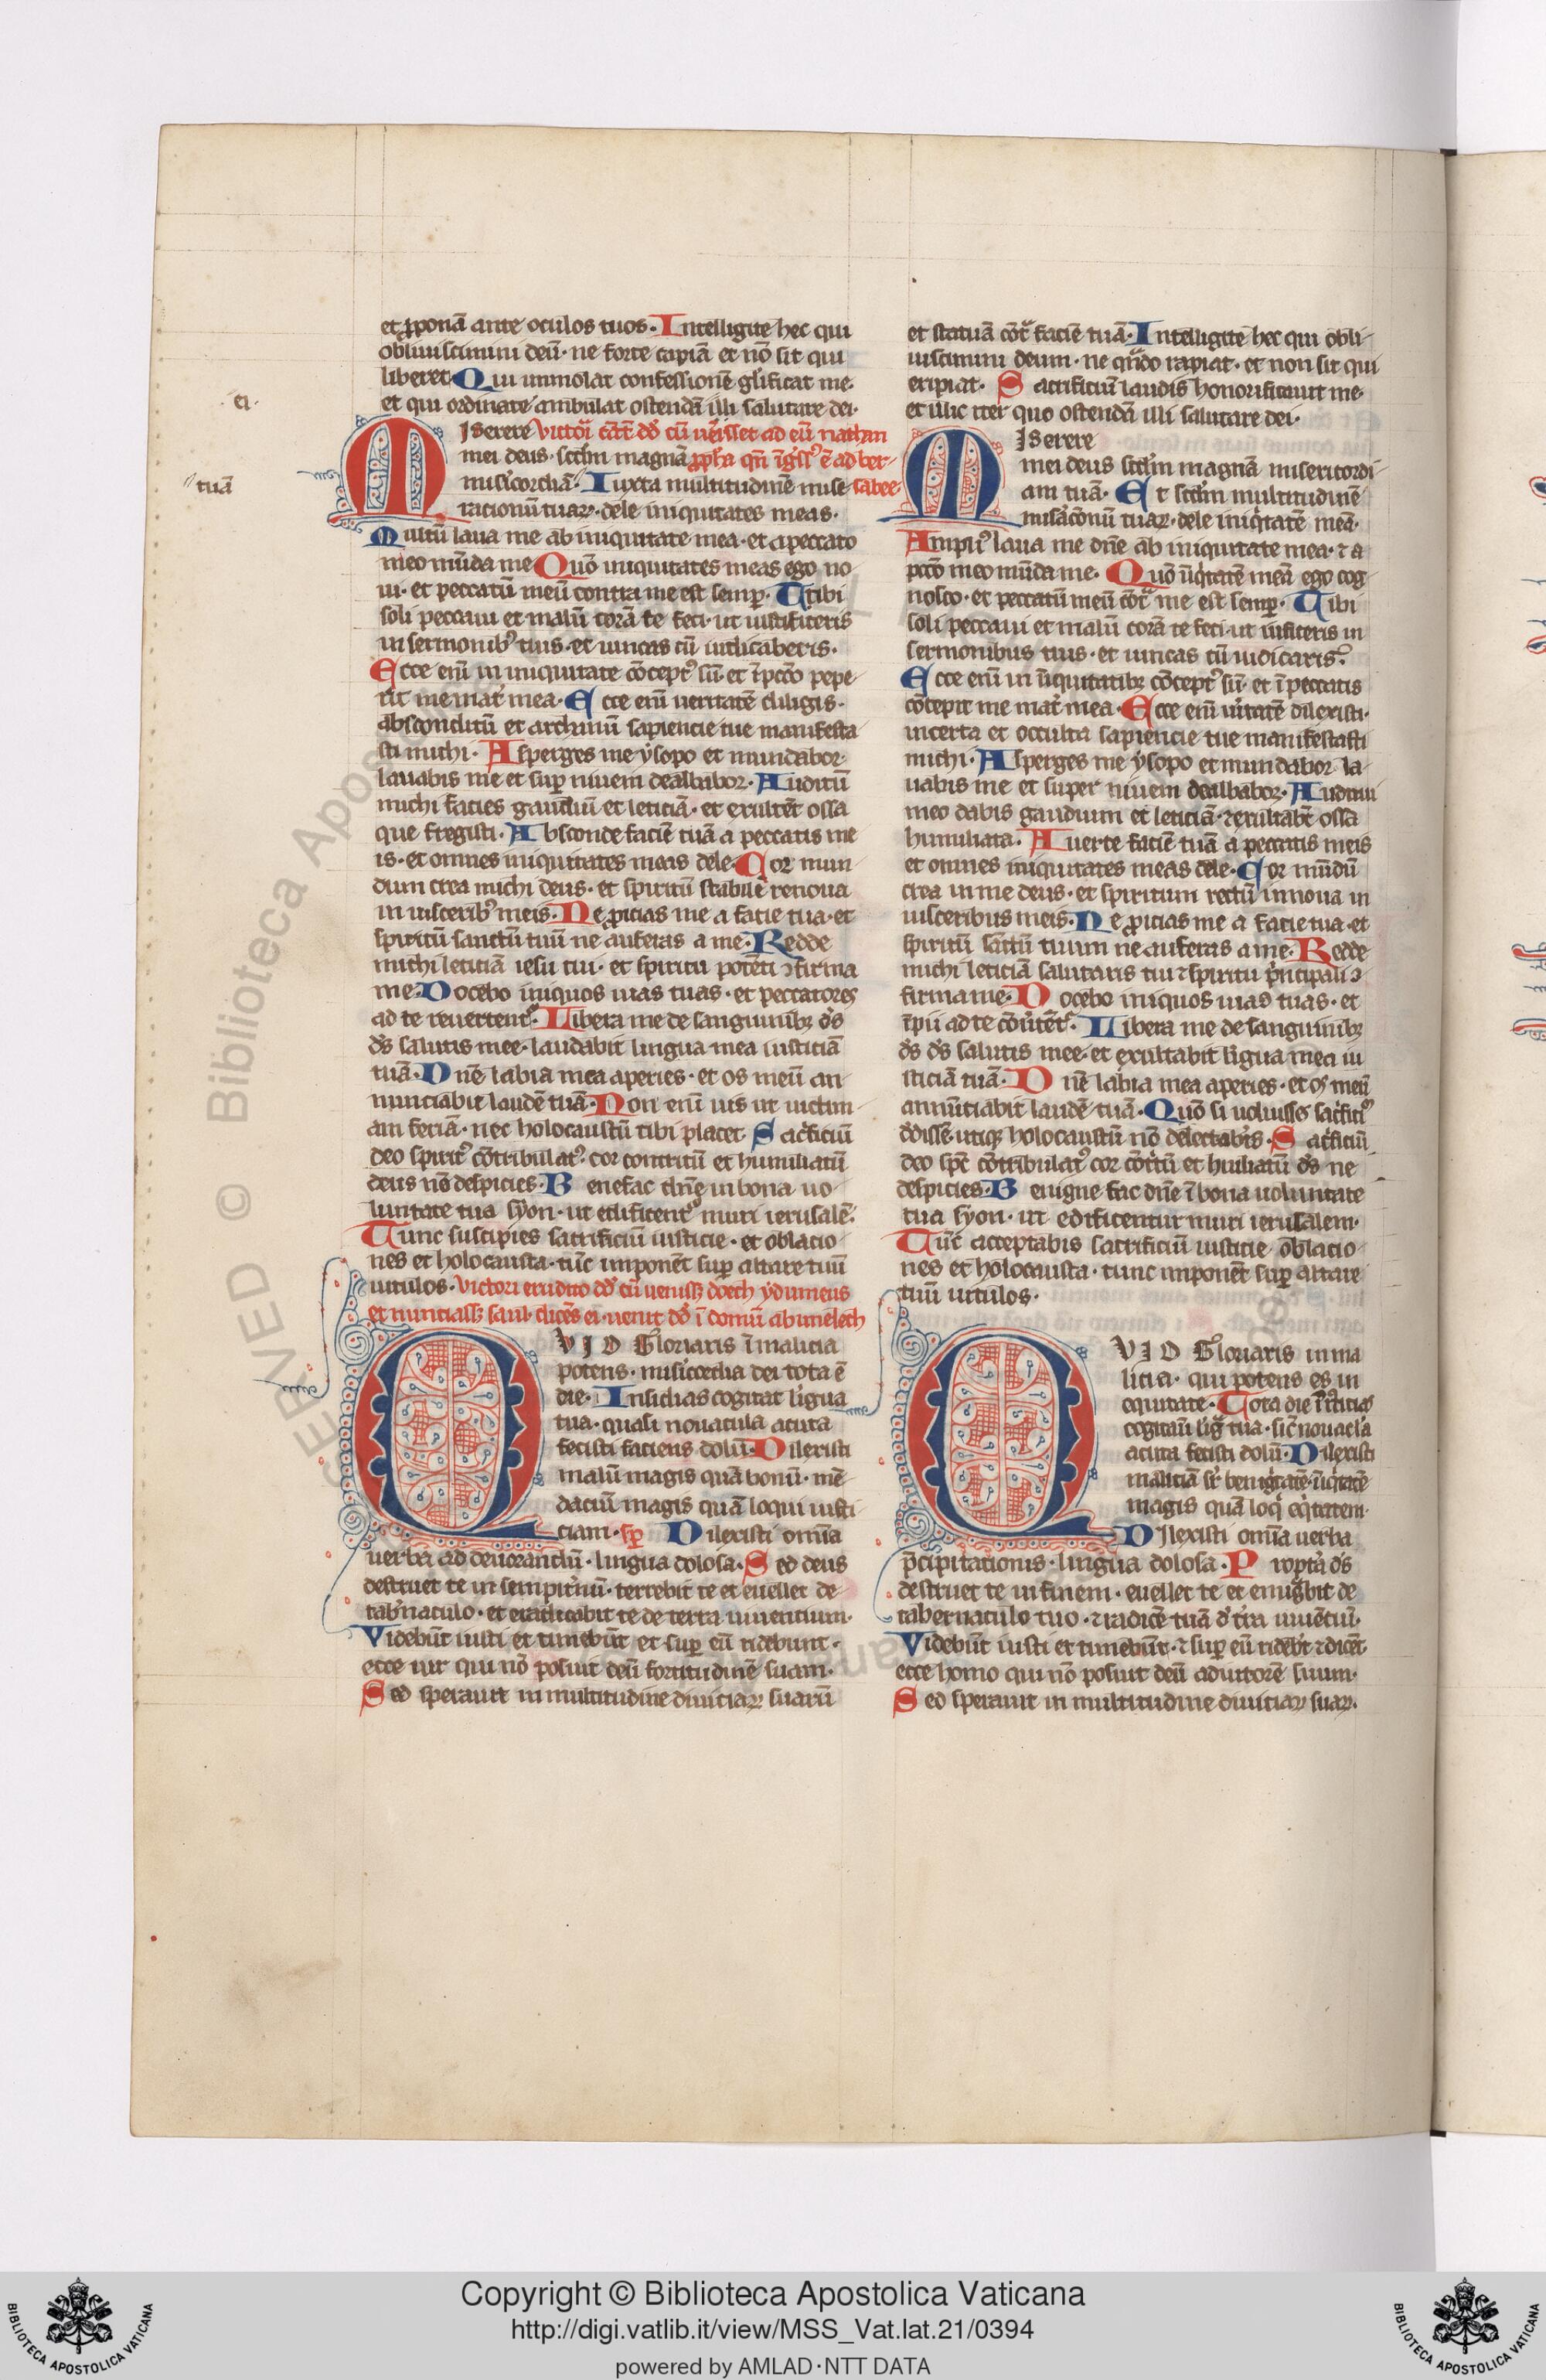 et ꝓponā ante oculos tuos· Intelligite hec qui
obliuiscimini deū· ne forte capiā et nō sit qui
liberet· Qui immolat confessionē glificat me·
et qui ordinate ambulat ostendā illi salutare dei·
ei·
Iserere
mei deus· scdm magnā
misicordiā· Iuxta multitudinē mise
sabee·
racionū tuaꝝ· dele iniquitates meas·
tuā
Multū laua me ab iniquitate mea· et a peccato
meo mūda me Quō iniquitates meas ego no
ui· et peccatū meū contra me est semꝑ· Tibi
soli peccaui et malū corā te feci· ut iustificeris
in sermonibꝰ tuis· et uincas cū iudicaberis·
Ecce enī in iniquitate cōceptꝰ sū· et ī pccō pepe
rit me mat mea· Ecce enī ueritatē diligis·
absconditū et archanū sapiencie tue manifesta
sti michi· Asperges me ysopo et mundabor·
lauabis me et suꝑ niuem dealbabor· Auditū
michi facies gaudiū et leticiā· et exultēt ossa
que fregisti· Absconde faciē tuā a peccatis me
is· et omnes iniquitates meas dele· Cor mun
dum crea michi deus· et spiritū stabilē renoua
in uisceribꝰ meis· Ne ꝓicias me a facie tua· et
spiritū sanctū tuū ne auferas a me· Redde
michi leticiā iesu tui· et spiritu potēti ꝯfirma
me· Docebo iniquos uias tuas· et peccatores
ad te reuertent· Libera me de sanguinibꝫ ds
ds salutis mee· laudabit lingua mea iusticiā
tuā· Dnē labia mea aperies· et os meū an
nunciabit laudē tuā· Non enī uis ut uictim
am feriā· nec holocaustū tibi placet Sacficiū
deo spiritꝰ cōtribulatꝰ· cor contritū et humiliatū
deus nō despicies· Benefac dnē in bona uo
luntate tua syon· ut edificent muri ierusalē·
Tunc suscipies sacrificiū iusticie· et oblacio
nes et holocausta· tūc imponēt suꝑ altare tuū
uitulos· Victori eruditio dd cū uenissꝫ doech ydumeus
et nunciassꝫ saul· dicēs ei· uenit dd ī domū abimelech
QVID Gloriaris ī malicia
potens· misicordia dei tota ē
die· Insidias cogitat ligua
tua· quasi nouacula acuta
fecisti faciens dolū· Dilexisti
malū magis quā bonū· mē
daciū magis quā loqui iusti
ciam· Dilexisti omīa
uerba ad deuorandū· lingua dolosa· Sed deus
destruet te in sempitnū· terrebit te et euellet de
tabnaculo· et eradicabit te de terra uiuentium·
Videbūt iusti et timebūt et suꝑ eū ridebunt·
ecce uir qui nō posuit deū fortitudinē suam·
Sed sperauit in multitudine diuiciaꝝ suarū
et statuā cōt faciē tuā· Intelligite hec qui obli
uiscimini deum· ne qndo rapiat· et non sit qui
eripiat· Sacrificiū laudis honorificauit me·
et illic iter quo ostendā illi salutare dei·
Iserere
mei deus scdm magnā misericordi
am tuā· Et scdm multitudinē
misacōnū tuaꝝ· dele iniqtatē meā·
Ampliꝰ laua me dne ab iniquitate mea· ⁊ a
pccō meo mūda me· Quō iiqtatē meā ego cog
nosco· et peccatū meū cōt me est semꝑ· Tibi
soli peccaui et malū corā te feci· ut iustificeris in
sermonibus tuis· et uincas cū iudicaris·
Ecce enī in iiquitatibꝫ cōceptꝰ sū· et ī peccatis
cōcepit me mat mea· Ecce enī uitatē dilexisti·
incerta et occulta sapiencie tue manifestasti
michi· Asperges me ysopo et mundabor la
uabis me et super niuem dealbabor· Auditui
meo dabis gaudium et leticiā· ⁊ exultabt ossa
humiliata· Auerte faciē tuā a peccatis meis
et omnes iniquitates meas dele· Cor mūdū
crea in me deus· et spiritum rectū innoua in
uisceribus meis· Ne ꝓicias me a facie tua· et
spiritū sāctū tuum ne auferas a me· Redde
michi leticiā salutaris tui ⁊ spiritu pncipali ꝯ
firma me· Docebo iniquos uias tuas· et
īpii ad te cōutēt· Libera me de sanguinibꝫ
ds ds salutis mee· et exultabit ligua mea iu
sticiā tuā· Dnē labia mea aperies· et os meū
annūtiabit laudē tuā· Quō si uoluisses sacficiꝰ
dedissē utiqꝫ holocaustū nō delectabis· Sacficiū
deo spc cōtribulatꝰ cor cōtitū et huiliatū ds ne
despicies· Benigne fac dne ī bona uoluntate
tua syon· ut edificentur muri ierusalem·
Tūc acceptabis sacrificiū iusticie oblacio
nes et holocausta· tunc imponēt suꝑ altare
tuū uitulos·
QVID Gloriaris in ma
licia· qui potens es in
iquitate· Tota die
cogitauit ligua tua· sic nouacla
acuta fecisti dolū· Dilexisti
maliciā sr benigtatē· iiqtatē
magis quā loqi eqtatem·
Dilexisti omīa uerba
pcipitacionis· lingua dolosa· Propta ds
destruet te in finem· euellet te et emigbit de
tabernaculo tuo· ⁊ radicē tuā d tra uiuētiū·
Videbūt iusti et timebūt· ⁊ suꝑ eū ridebt ⁊ dicēt
ecce homo qui nō posuit deū adiutorē suum·
Sed sperauit in multitudine diuiciaꝝ suaꝝ·
Copyright © Biblioteca Apostolica Vaticana
http://digi.vatlib.it/view/MSS_Vat.lat.21/0394
powered by AMLAD·NTT DATA
BIBLIOTECA APOSTOLICA VATICANA
BIBLIOTECA APOSTOLICA VATICANA